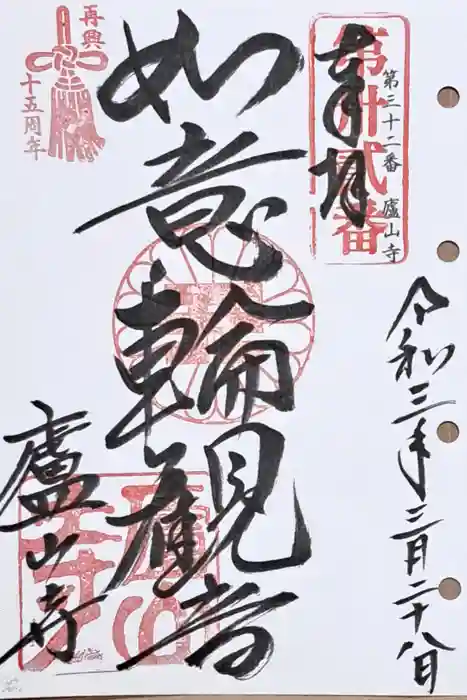 奉拝
第三十二番 廬山寺
第卅貳番
令和三年三月二十八日
如意輪観音
廬山寺
再興
十五周年